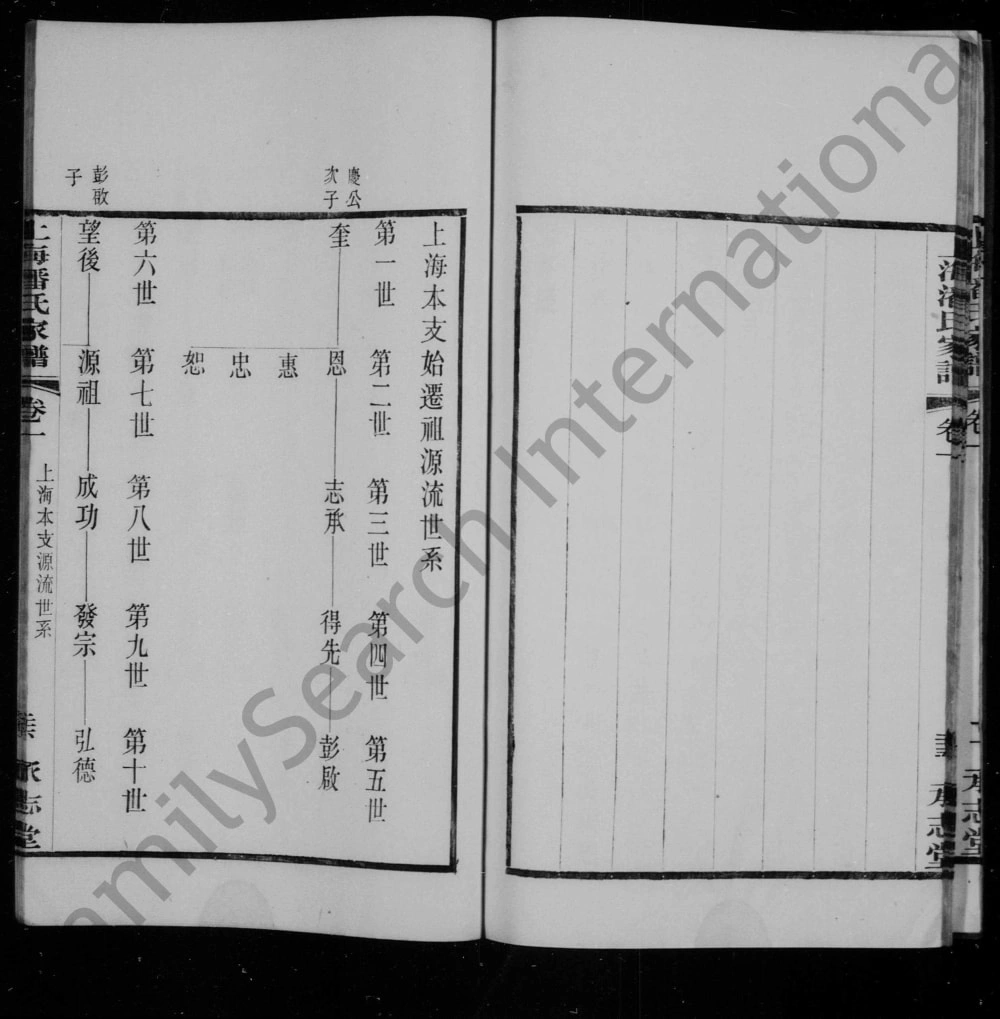 上海潘氏家譜
卷一
承志堂
上海本支始遷祖源流世系
第一世
第二世
第三世
第四世
第五世
慶公
次子
奎
恩
志承
得先
彭啟
惠
忠
恕
第六世
第七世
第八世
第九世
第十世
彭啟
子
望後
源祖
成功
發宗
弘德
上海潘氏家譜
卷一
上海本支源流世系
志堂
FamilySearch International